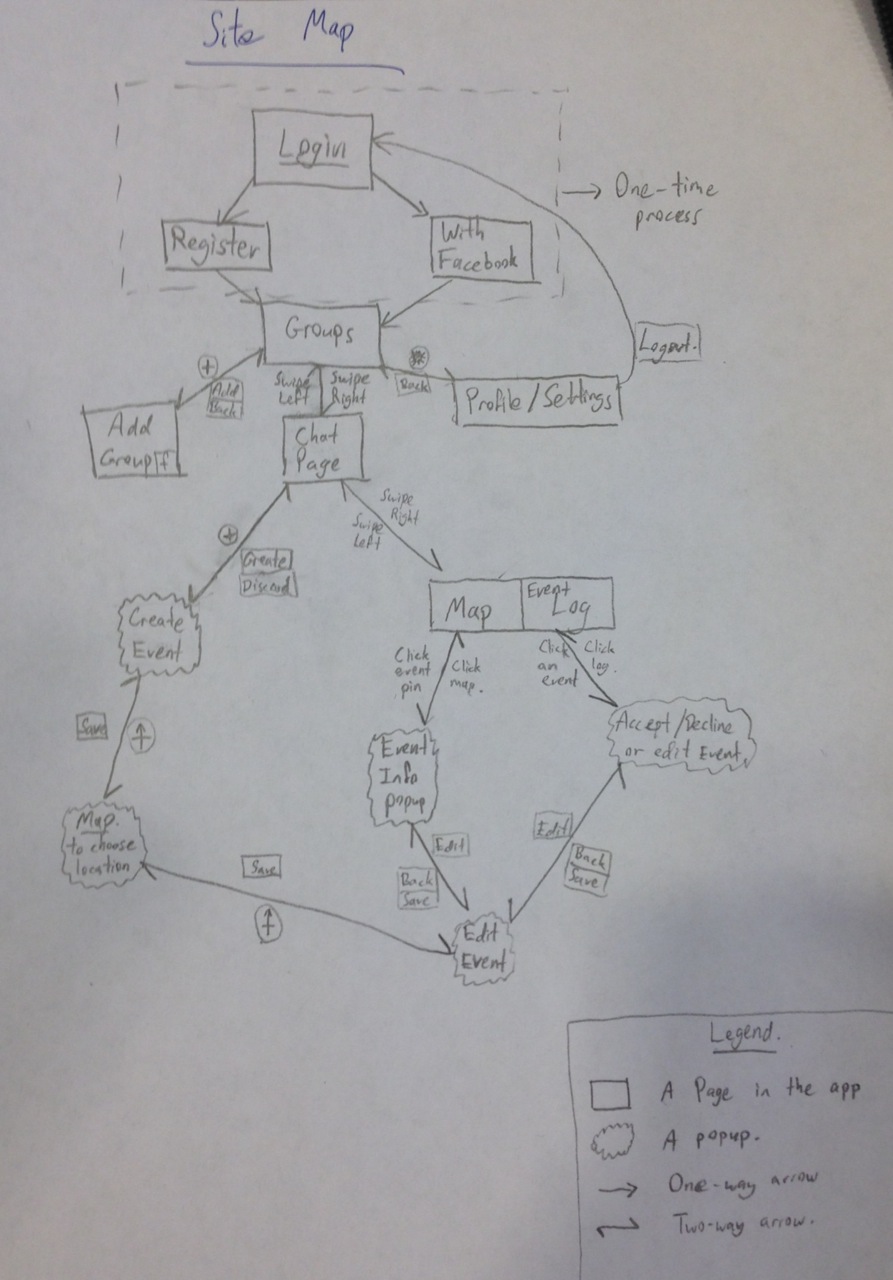 Site Map
Login
One-time
process
Register
With
Facebook
Groups
Logout.
+
Add
Back
Swipe
Left
Swipe
Right
Back
Profile/Settings
Add
Group
Chat
Page
Swipe
Right
Swipe
Left
+
Create
Discard
Create
Event
Map
Event
Log
Click
event
pin
Click
map.
Click
an
event
Click
log.
Save
Event
Info
popup
Accept/Decline
or edit Event.
Map
to choose
location
Edit
Back
Save
Edit
Back
Save
Save
Edit
Event
Legend.
A Page in the app
A popup.
One-way arrow
Two-way arrow.